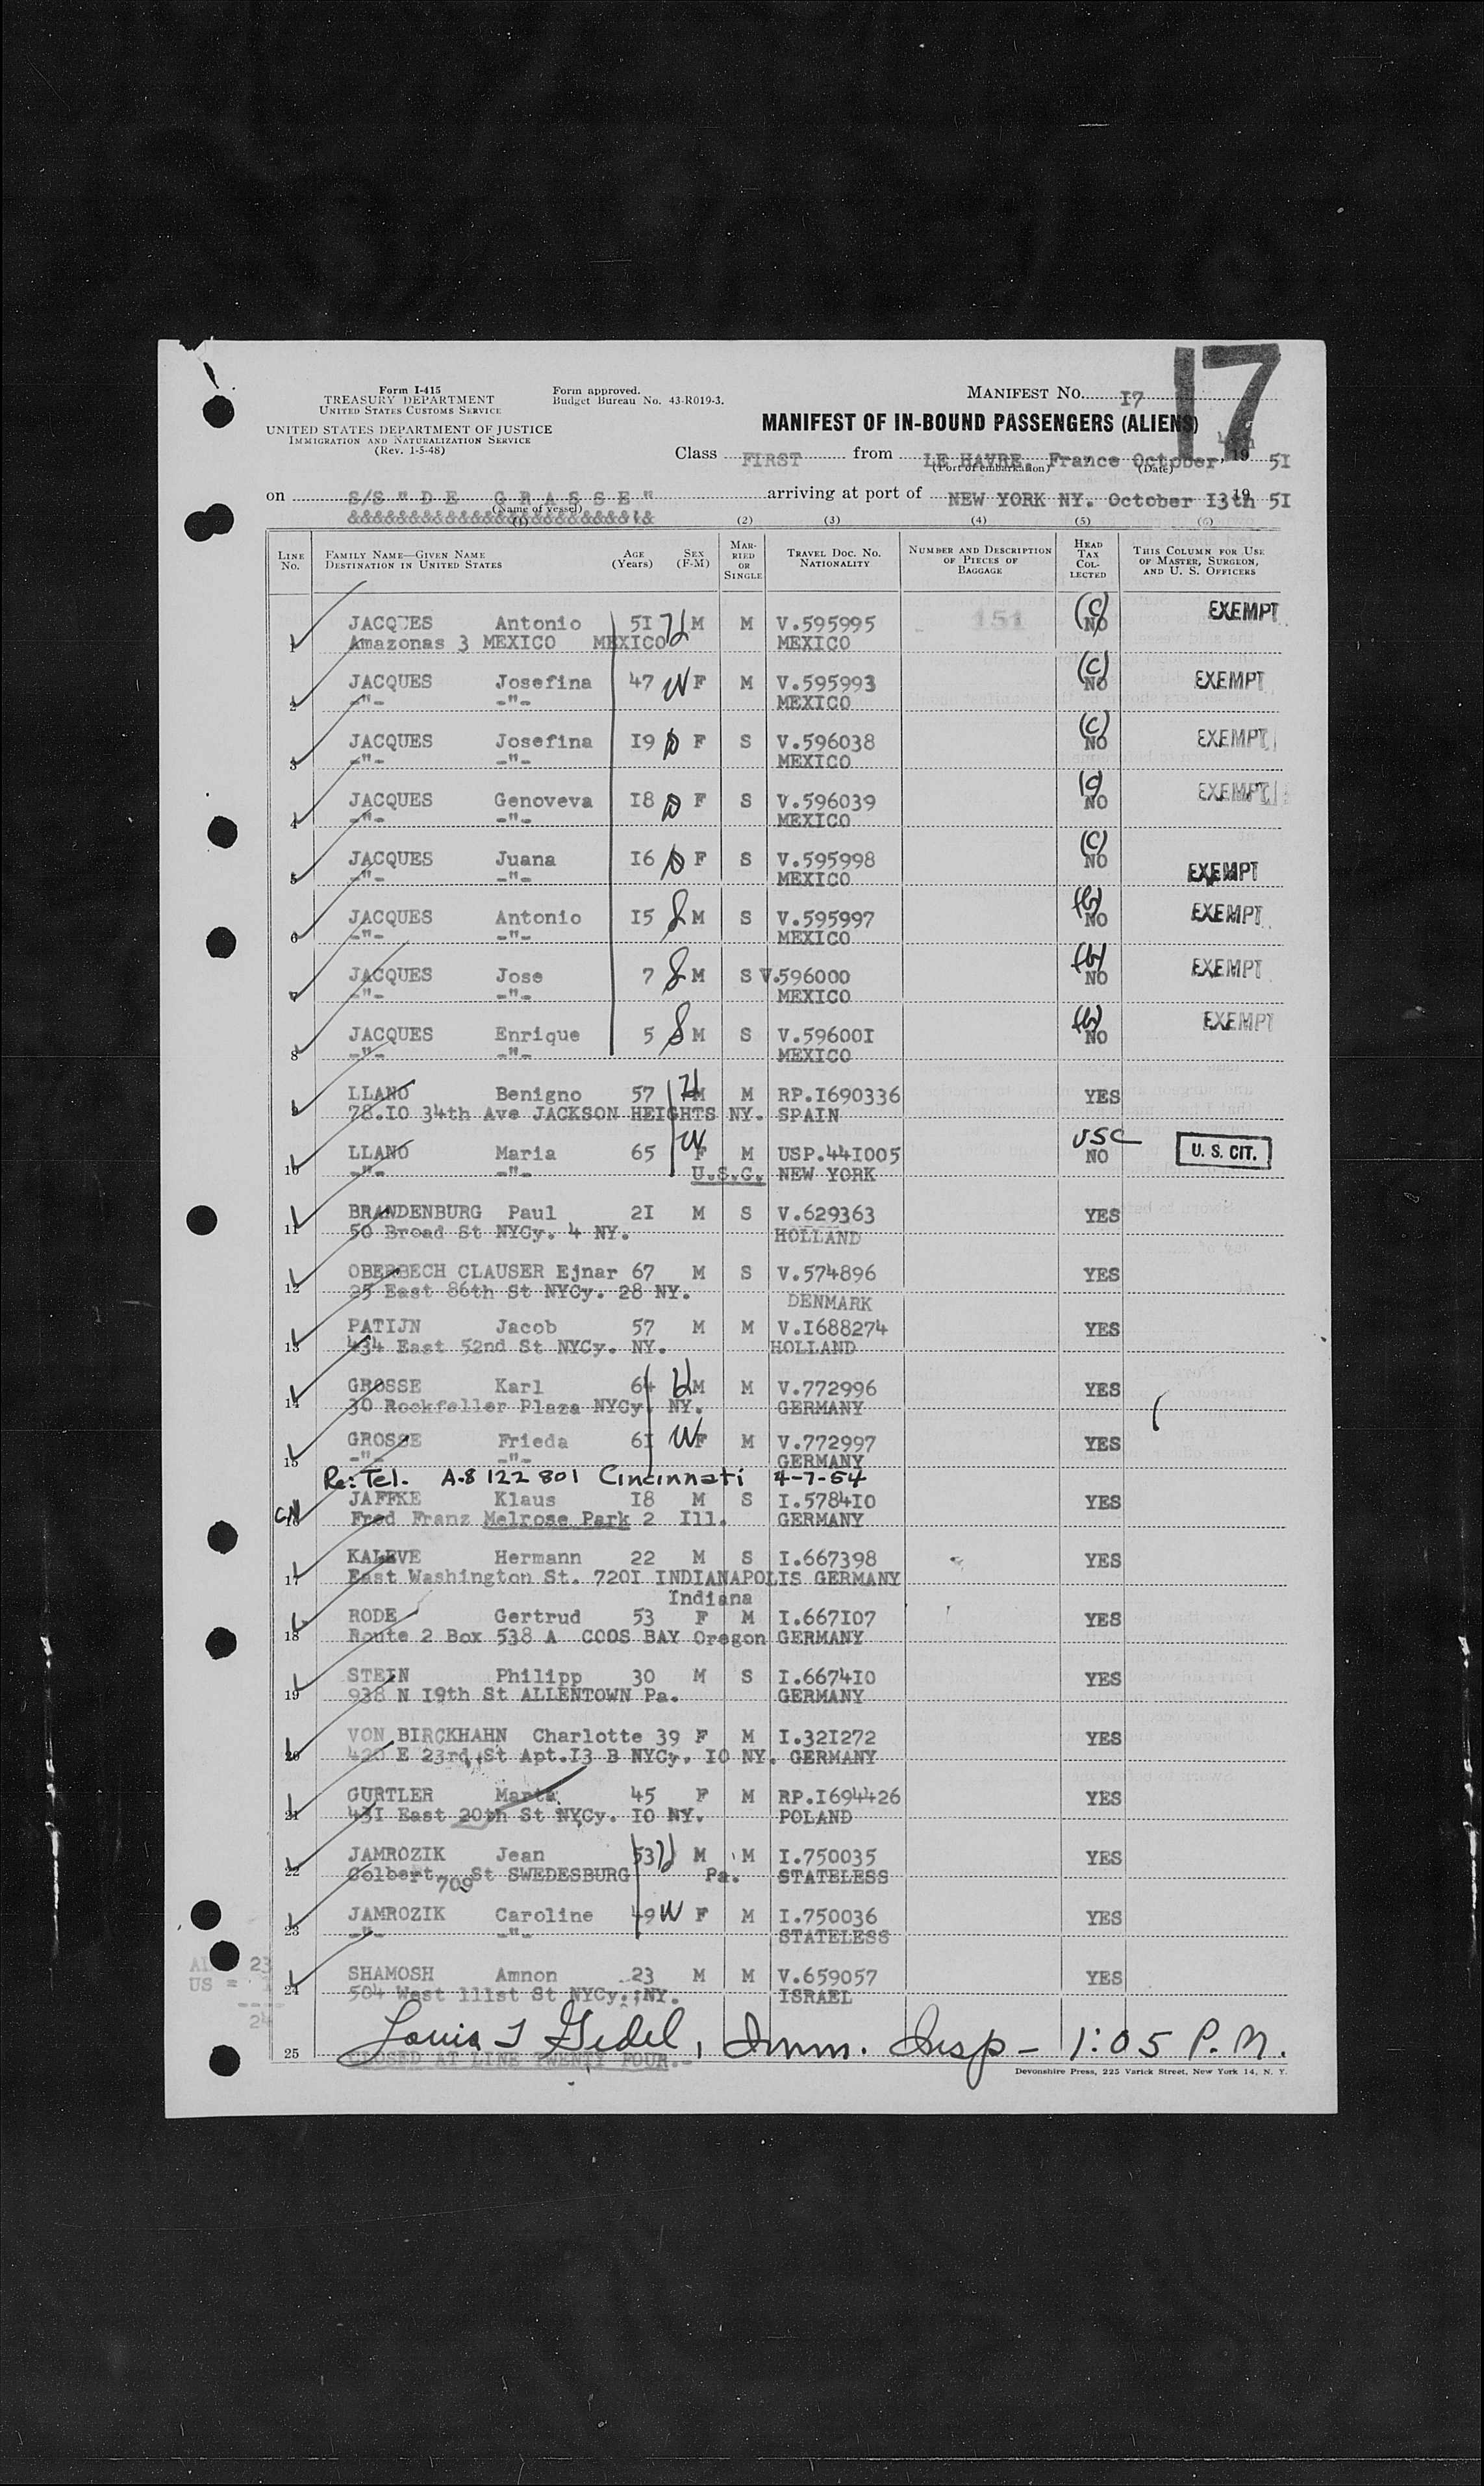 17
Form I-415
TREASURY DEPARTMENT
UNITED STATES CUSTOMS SERVICE
UNITED STATES DEPARTMENT OF JUSTICE
IMMIGRATION AND NATURALIZATION SERVICE
(Rev. 1-5-48)
Form approved.
Budget Bureau No. 43-R019-3.
MANIFEST No. I7
MANIFEST OF IN-BOUND PASSENGERS (ALIENS)
Class FIRST from LE HAVRE, France October , 19 5I
(Port of embarkation) (Date)
on S/S " D E G R A S S E " arriving at port of NEW YORK NY. October I3th 19 5I
(Name of vessel)
(1) (2) (3) (4) (5) (6)
LINE No. FAMILY NAME—GIVEN NAME DESTINATION IN UNITED STATES AGE (Years) SEX (F-M) MARRIED OR SINGLE TRAVEL DOC. NO. NATIONALITY NUMBER AND DESCRIPTION OF PIECES OF BAGGAGE HEAD TAX COLLECTED THIS COLUMN FOR USE OF MASTER, SURGEON, AND U. S. OFFICERS
1 JACQUES Antonio 5I H M M V.595995 151 (C) NO EXEMPT
Amazonas 3 MEXICO MEXICO MEXICO
2 JACQUES Josefina 47 W F M V.595993 (C) NO EXEMPT
-"- -"- MEXICO
3 JACQUES Josefina I9 D F S V.596038 (C) NO EXEMPT
-"- -"- MEXICO
4 JACQUES Genoveva I8 D F S V.596039 (C) NO EXEMPT
-"- -"- MEXICO
5 JACQUES Juana I6 D F S V.595998 (C) NO EXEMPT
-"- -"- MEXICO
6 JACQUES Antonio I5 S M S V.595997 (b) NO EXEMPT
-"- -"- MEXICO
7 JACQUES Jose 7 S M S V.596000 (b) NO EXEMPT
-"- -"- MEXICO
8 JACQUES Enrique 5 S M S V.59600I (b) NO EXEMPT
-"- -"- MEXICO
9 LLANO Benigno 57 H M M RP.I690336 YES
78.IO 34th Ave JACKSON HEIGHTS NY. SPAIN
10 LLANO Maria 65 W F M USP.44I005 USC NO U. S. CIT.
-"- -"- U.S.C. NEW YORK
11 BRANDENBURG Paul 2I M S V.629363 YES
50 Broad St NYCy. 4 NY. HOLLAND
12 OBERBECH CLAUSER Ejnar 67 M S V.574896 YES
25 East 86th St NYCy. 28 NY. DENMARK
13 PATIJN Jacob 57 M M V.I688274 YES
434 East 52nd St NYCy. NY. HOLLAND
14 GROSSE Karl 64 H M M V.772996 YES
30 Rockfeller Plaza NYCy. NY. GERMANY
15 GROSSE Frieda 6I W F M V.772997 YES
-"- -"- GERMANY
Re: Tel. A-8 122 801 Cincinnati 4-7-54
16 JAFFKE Klaus I8 M S I.5784I0 YES
Fred Franz Melrose Park 2 Ill. GERMANY
17 KALEVE Hermann 22 M S I.667398 YES
East Washington St. 720I INDIANAPOLIS GERMANY
Indiana
18 RODE Gertrud 53 F M I.667I07 YES
Route 2 Box 538 A COOS BAY Oregon GERMANY
19 STEIN Philipp 30 M S I.6674I0 YES
938 N I9th St ALLENTOWN Pa. GERMANY
20 VON BIRCKHAHN Charlotte 39 F M I.32I272 YES
420 E 23rd, St Apt.I3 B NYCy. IO NY. GERMANY
21 GURTLER Marta 45 F M RP.I694426 YES
43I East 20th St NYCy. IO NY. POLAND
22 JAMROZIK Jean 53 H M M I.750035 YES
Colbert 709 St SWEDESBURG Pa. STATELESS
23 JAMROZIK Caroline 49 W F M I.750036 YES
-"- -"- STATELESS
24 SHAMOSH Amnon 23 M M V.659057 YES
504 West 111st St NYCy. NY. ISRAEL
23
US = 1
24
25 Louis J Gedel, Imm. Insp - 1:05 P.M.
CLOSED AT LINE TWENTY FOUR.-
Devonshire Press, 225 Varick Street, New York 14, N. Y.